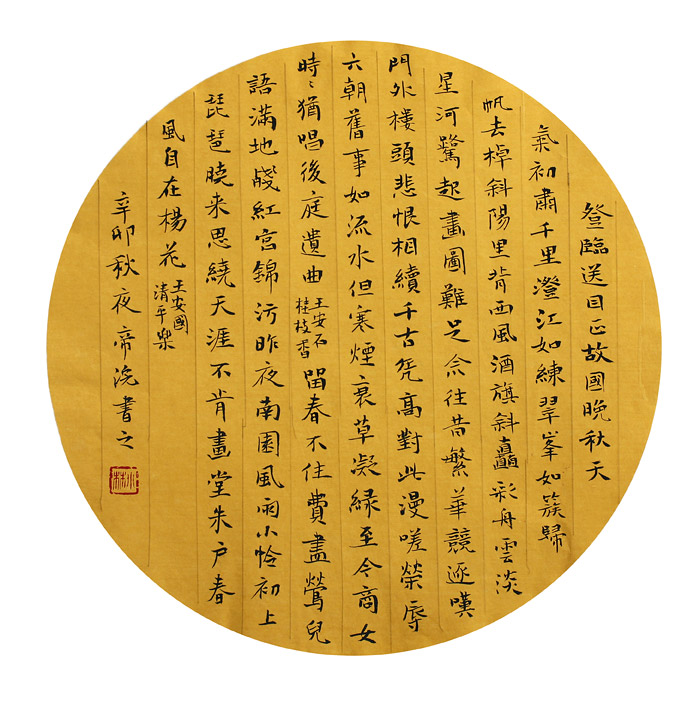 登臨送目正故國晚秋天
氣初肅千里澄江如練翠峯如簇歸
帆去棹斜陽里背西風酒旗斜矗彩舟雲淡
星河鷺起畫圖難足念往昔繁華競逐嘆
門外樓頭悲恨相續千古凭高對此漫嗟榮辱
六朝舊事如流水但寒煙衰草凝緑至今商女
時〻猶唱後庭遺曲王安石桂枝香留春不住費盡鶯兒
語滿地殘紅宮錦污昨夜南園風雨小怜初上
琵琶曉来思繞天涯不肯畫堂朱户春
風自在楊花王安國清平樂
辛卯秋夜帝浣書之